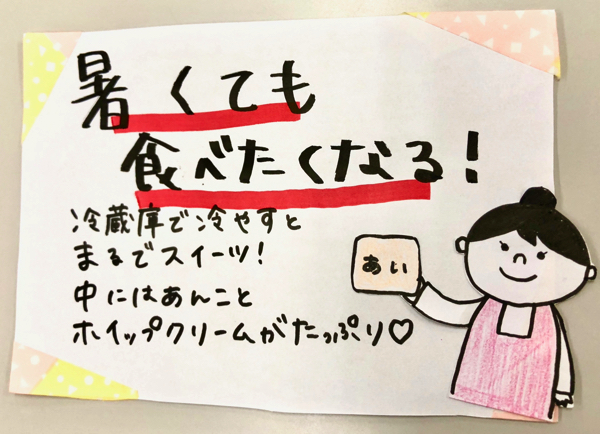 暑くても
食べたくなる!
冷蔵庫で冷やすと
まるでスイーツ!
中にはあんこと
ホイップクリームがたっぷり♡
あい